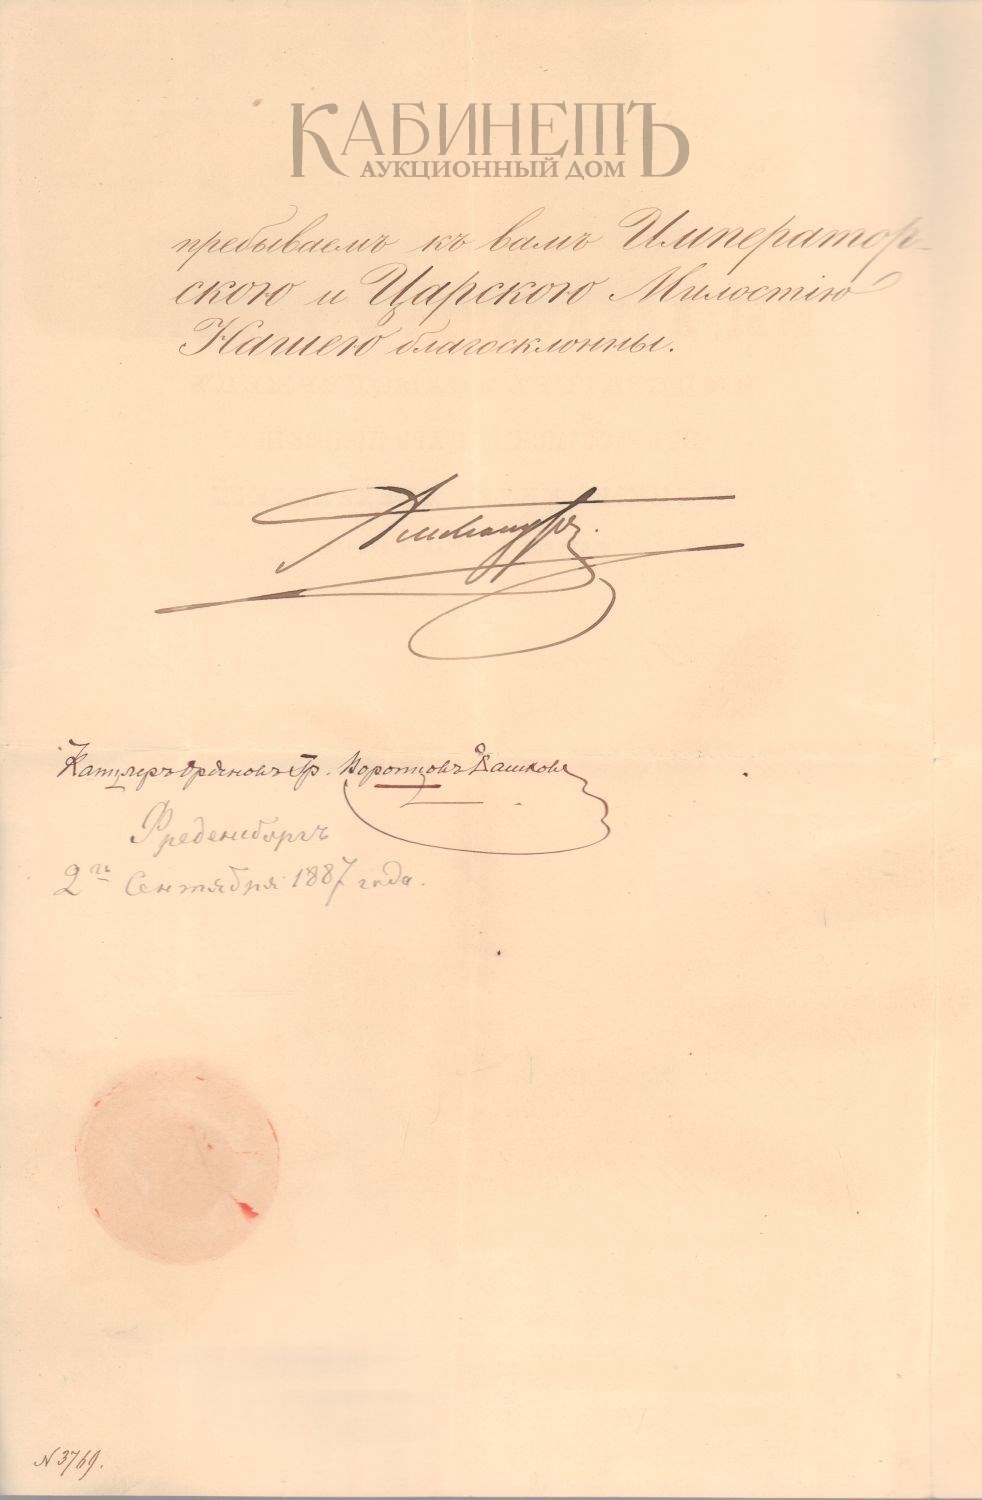 КАБИНЕТЪ
АУКЦИОННЫЙ ДОМ
пребываемъ къ вамъ Император-
скою и Царскою Милостію
Нашею благосклонны.
Александръ.
Канцлеръ орденовъ Гр. Воронцовъ Дашковъ
Фреденсборгъ
2го Сентября 1887 года.
N 3769.